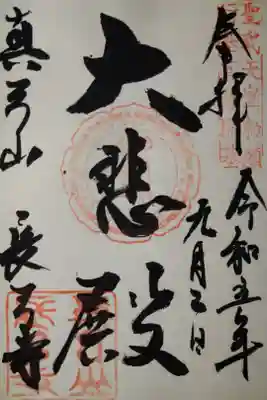 奉拝
令和五年
九月二日
大悲殿
真弓山
長弓寺